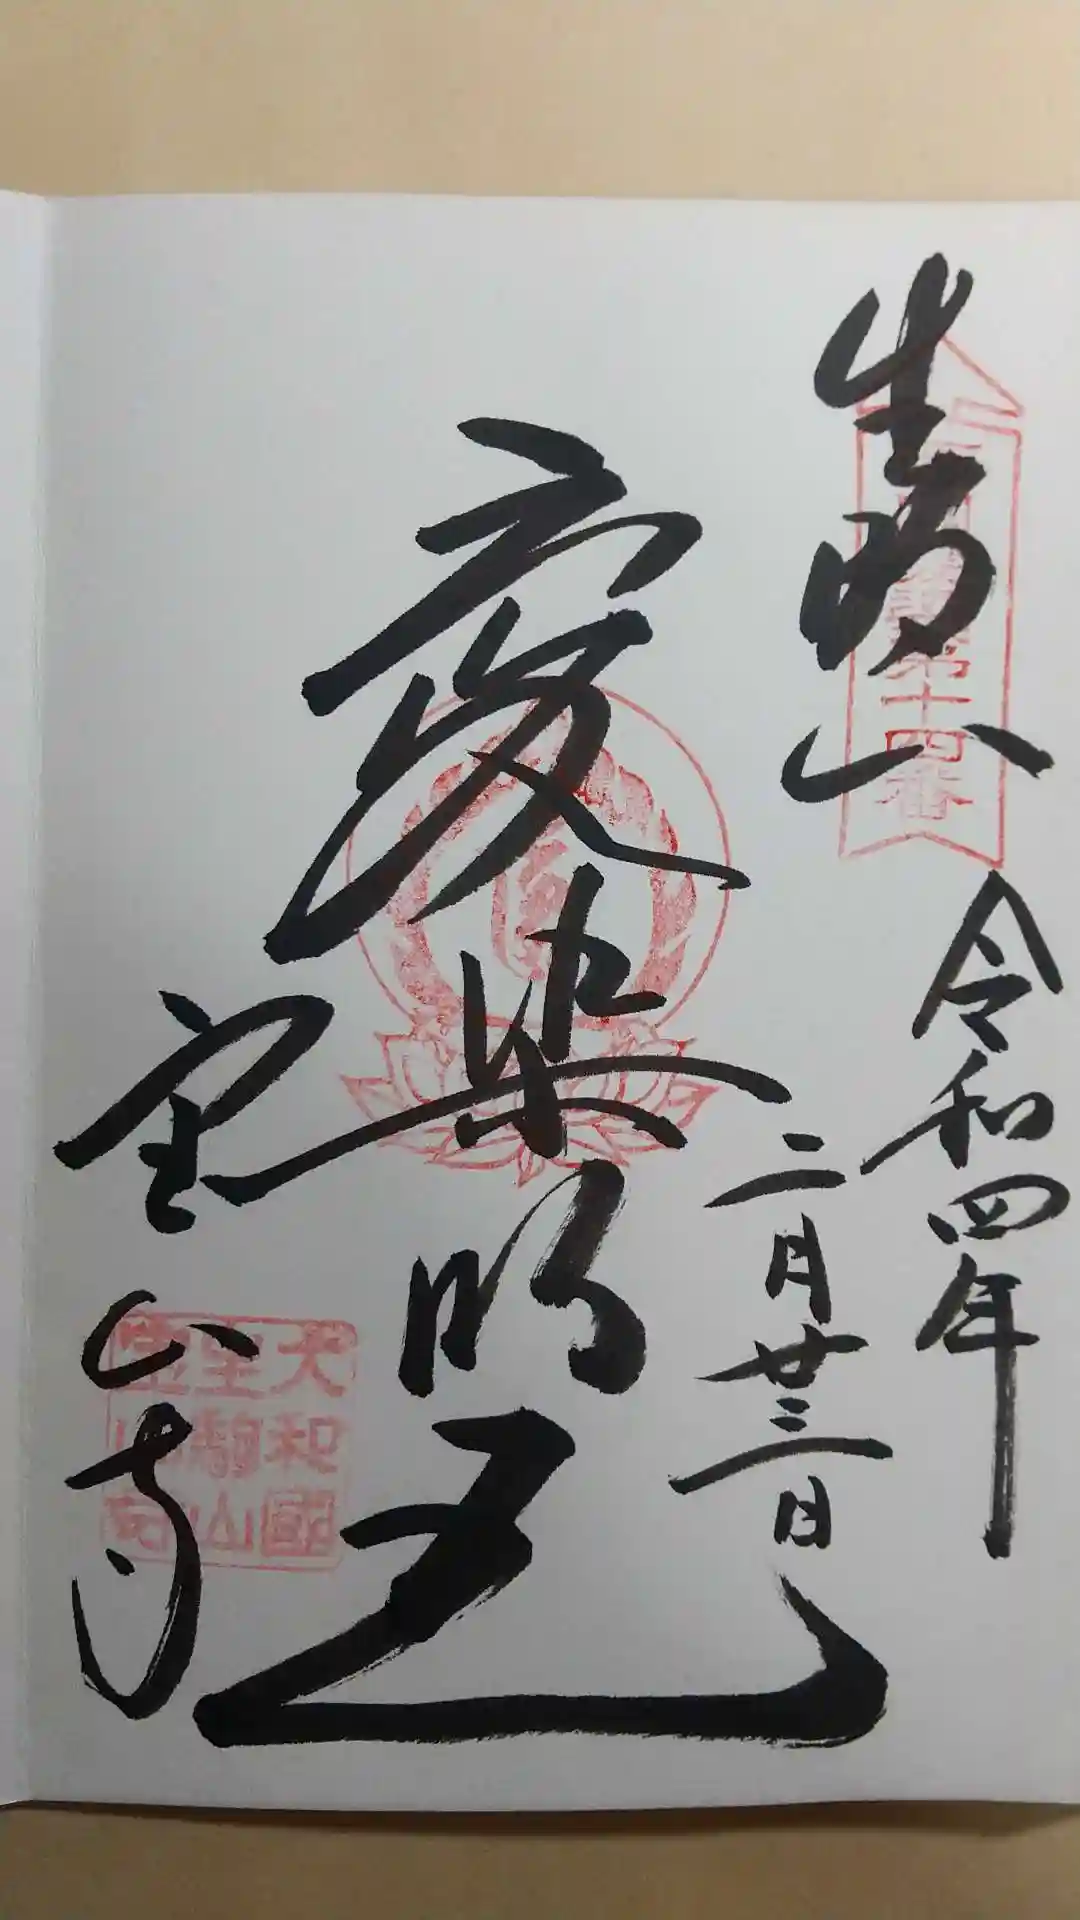 生駒山
第十四番
令和四年
二月廿三日
愛染明王
宝山寺
大和國
生駒山
宝山寺